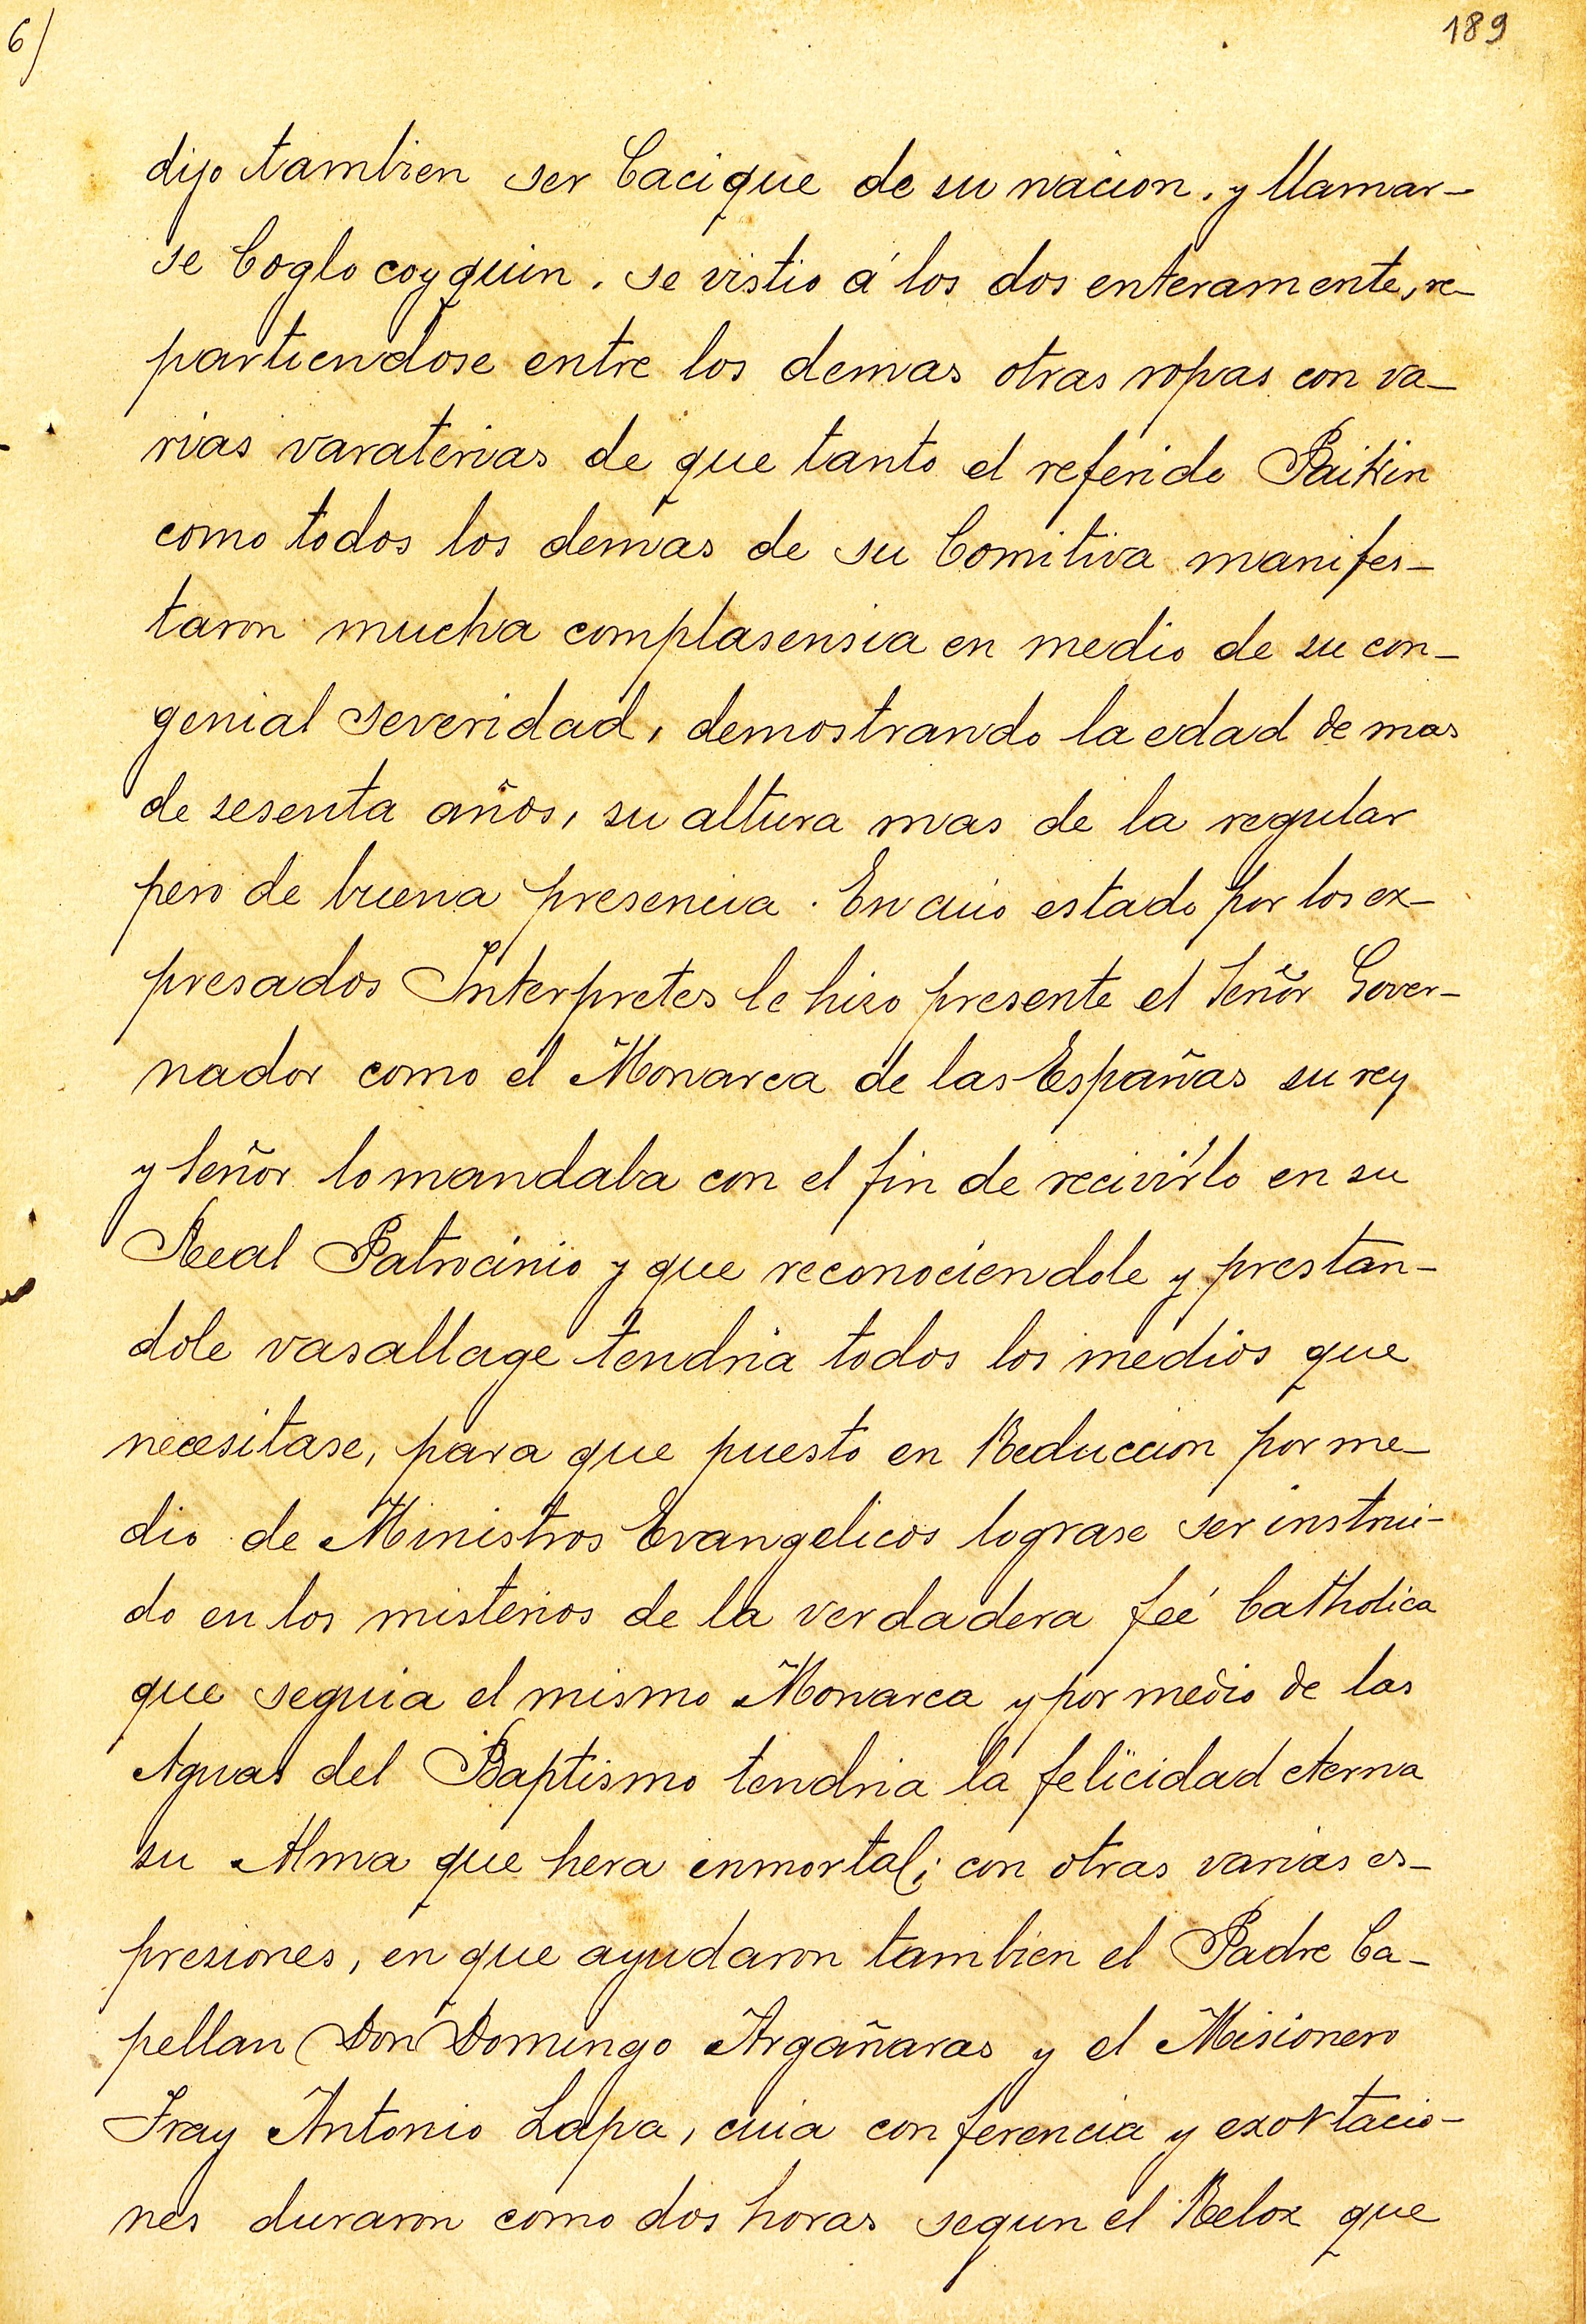 6)
189
dijo tambien ser Cacique de su nacion, y llamar-
se Coglocoyquin. se vistio á los dos enteramente, re-
partiendose entre los demas otras ropas con va-
rias varaterias de que tanto el referido Paikin
como todos los demas de su Comitiva manifes-
taron mucha complasensia en medio de su con-
genial severidad, demostrando la edad de mas
de sesenta años, su altura mas de la regular
pero de buena presencia. En cuio estado por los ex-
presados Interpretes le hizo presente el Señor Gover-
nador como el Monarca de las Españas su rey
y Señor lo mandaba con el fin de recivirlo en su
Real Patrocinio y que reconociendole y prestan-
dole vasallage tendria todos los medios que
necesitase, para que puesto en Reduccion por me-
dio de Ministros Evangelicos lograse ser instrui-
do en los misterios de la verdadera feé Catholica
que seguia el mismo Monarca y por medio de las
Aguas del Baptismo tendria la felicidad eterna
su Alma que hera inmortal; con otras varias es-
presiones, en que ayudaron tambien el Padre Ca-
pellan Don Domingo Argañaras y el Misionero
Fray Antonio Lapa, cuia conferencia y exortacio-
nes duraron como dos horas segun el Relox que